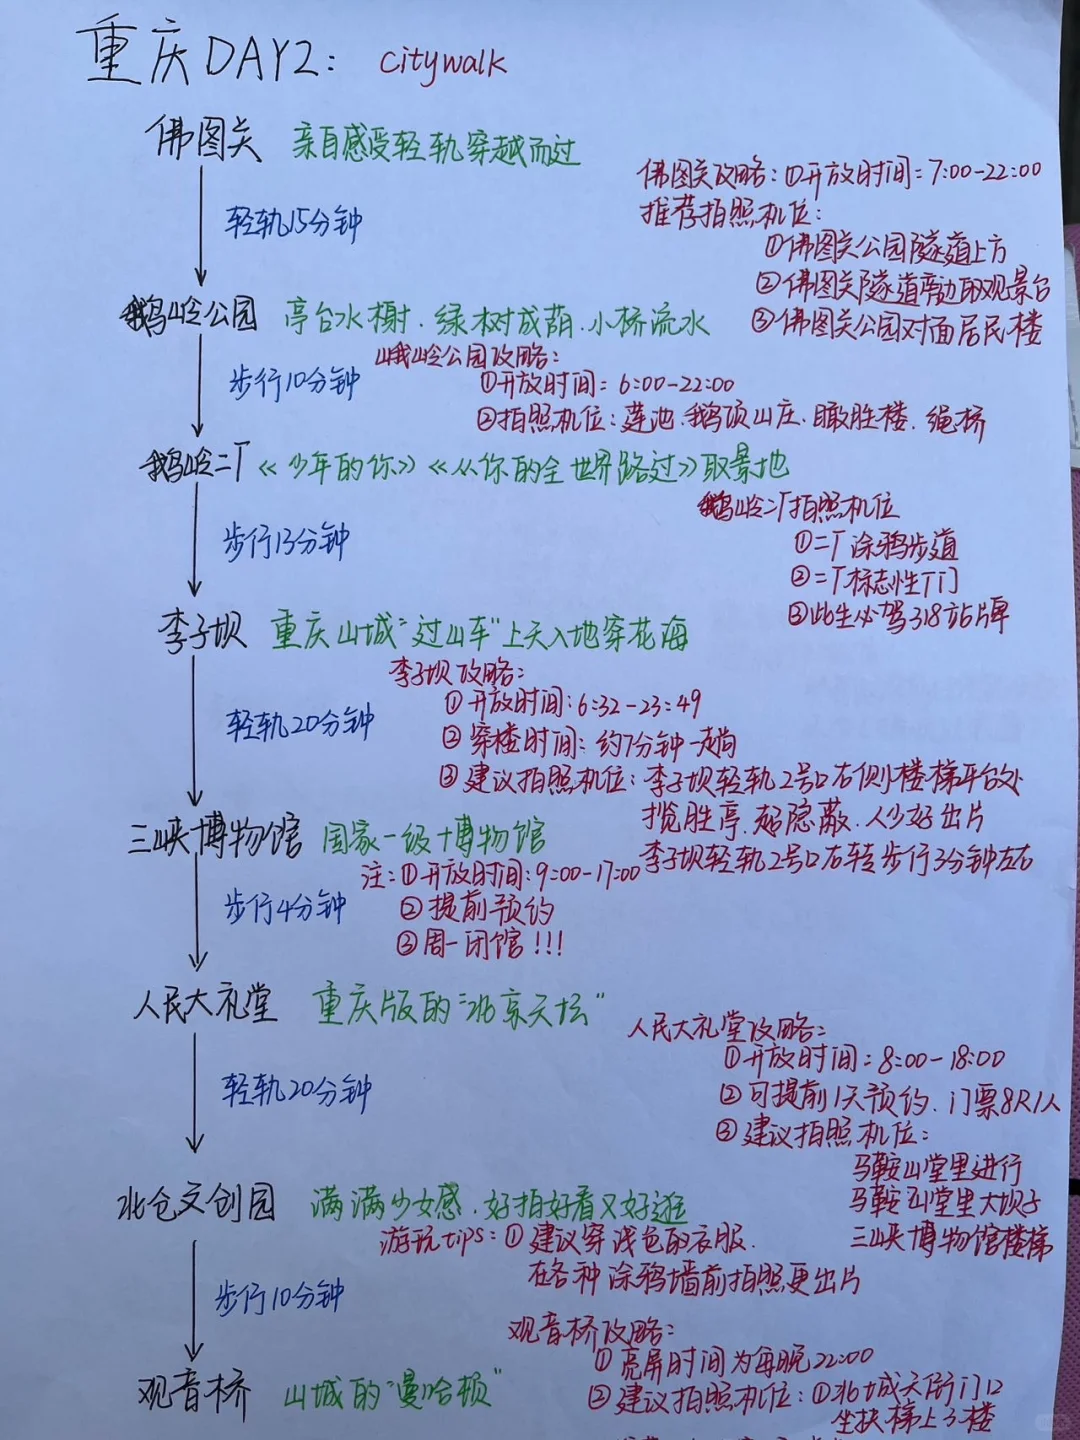 重庆DAY2: citywalk
佛图关 亲自感受轻轨穿越而过
佛图关攻略:①开放时间:7:00-22:00
轻轨15分钟
推荐拍照机位:
①佛图关公园隧道上方
②佛图关隧道旁边的观景台
③佛图关公园对面居民楼
鹅岭公园 亭台水榭.绿树成荫.小桥流水
峨岭公园攻略:
步行10分钟
①开放时间:6:00-22:00
②拍照机位:莲池.鹅项山庄.瞰胜楼.绳桥
鹅岭二厂《少年的你》《从你的全世界路过》取景地
鹅岭二厂拍照机位
步行13分钟
①二厂涂鸦步道
②二厂标志性厂门
③此生必驾318站牌
李子坝 重庆山城"过山车"上天入地穿花海
李子坝攻略:
①开放时间:6:32-23:49
轻轨20分钟
②穿楼时间:约7分钟一趟
③建议拍照机位:李子坝轻轨2号口右侧楼梯平台处
揽胜亭.超隐蔽.人少好出片
李子坝轻轨2号口右转步行3分钟左右
三峡博物馆 国家一级博物馆
注:①开放时间:9:00-17:00
步行4分钟
②提前预约
③周一闭馆!!!
人民大礼堂 重庆版的"北京天坛"
人民大礼堂攻略:
①开放时间:8:00-18:00
轻轨20分钟
②可提前1天预约.门票8R/人
③建议拍照机位:
马鞍山堂里进行
马鞍山堂里大坝子
三峡博物馆楼梯
北仓文创园 满满少女感.好拍好看又好逛
游玩tips:①建议穿浅色的衣服.
在各种涂鸦墙前拍照更出片
步行10分钟
观音桥攻略:
①亮屏时间为每晚22:00
观音桥 山城的"曼哈顿"
②建议拍照机位:①北城天街门口
坐扶梯上3楼